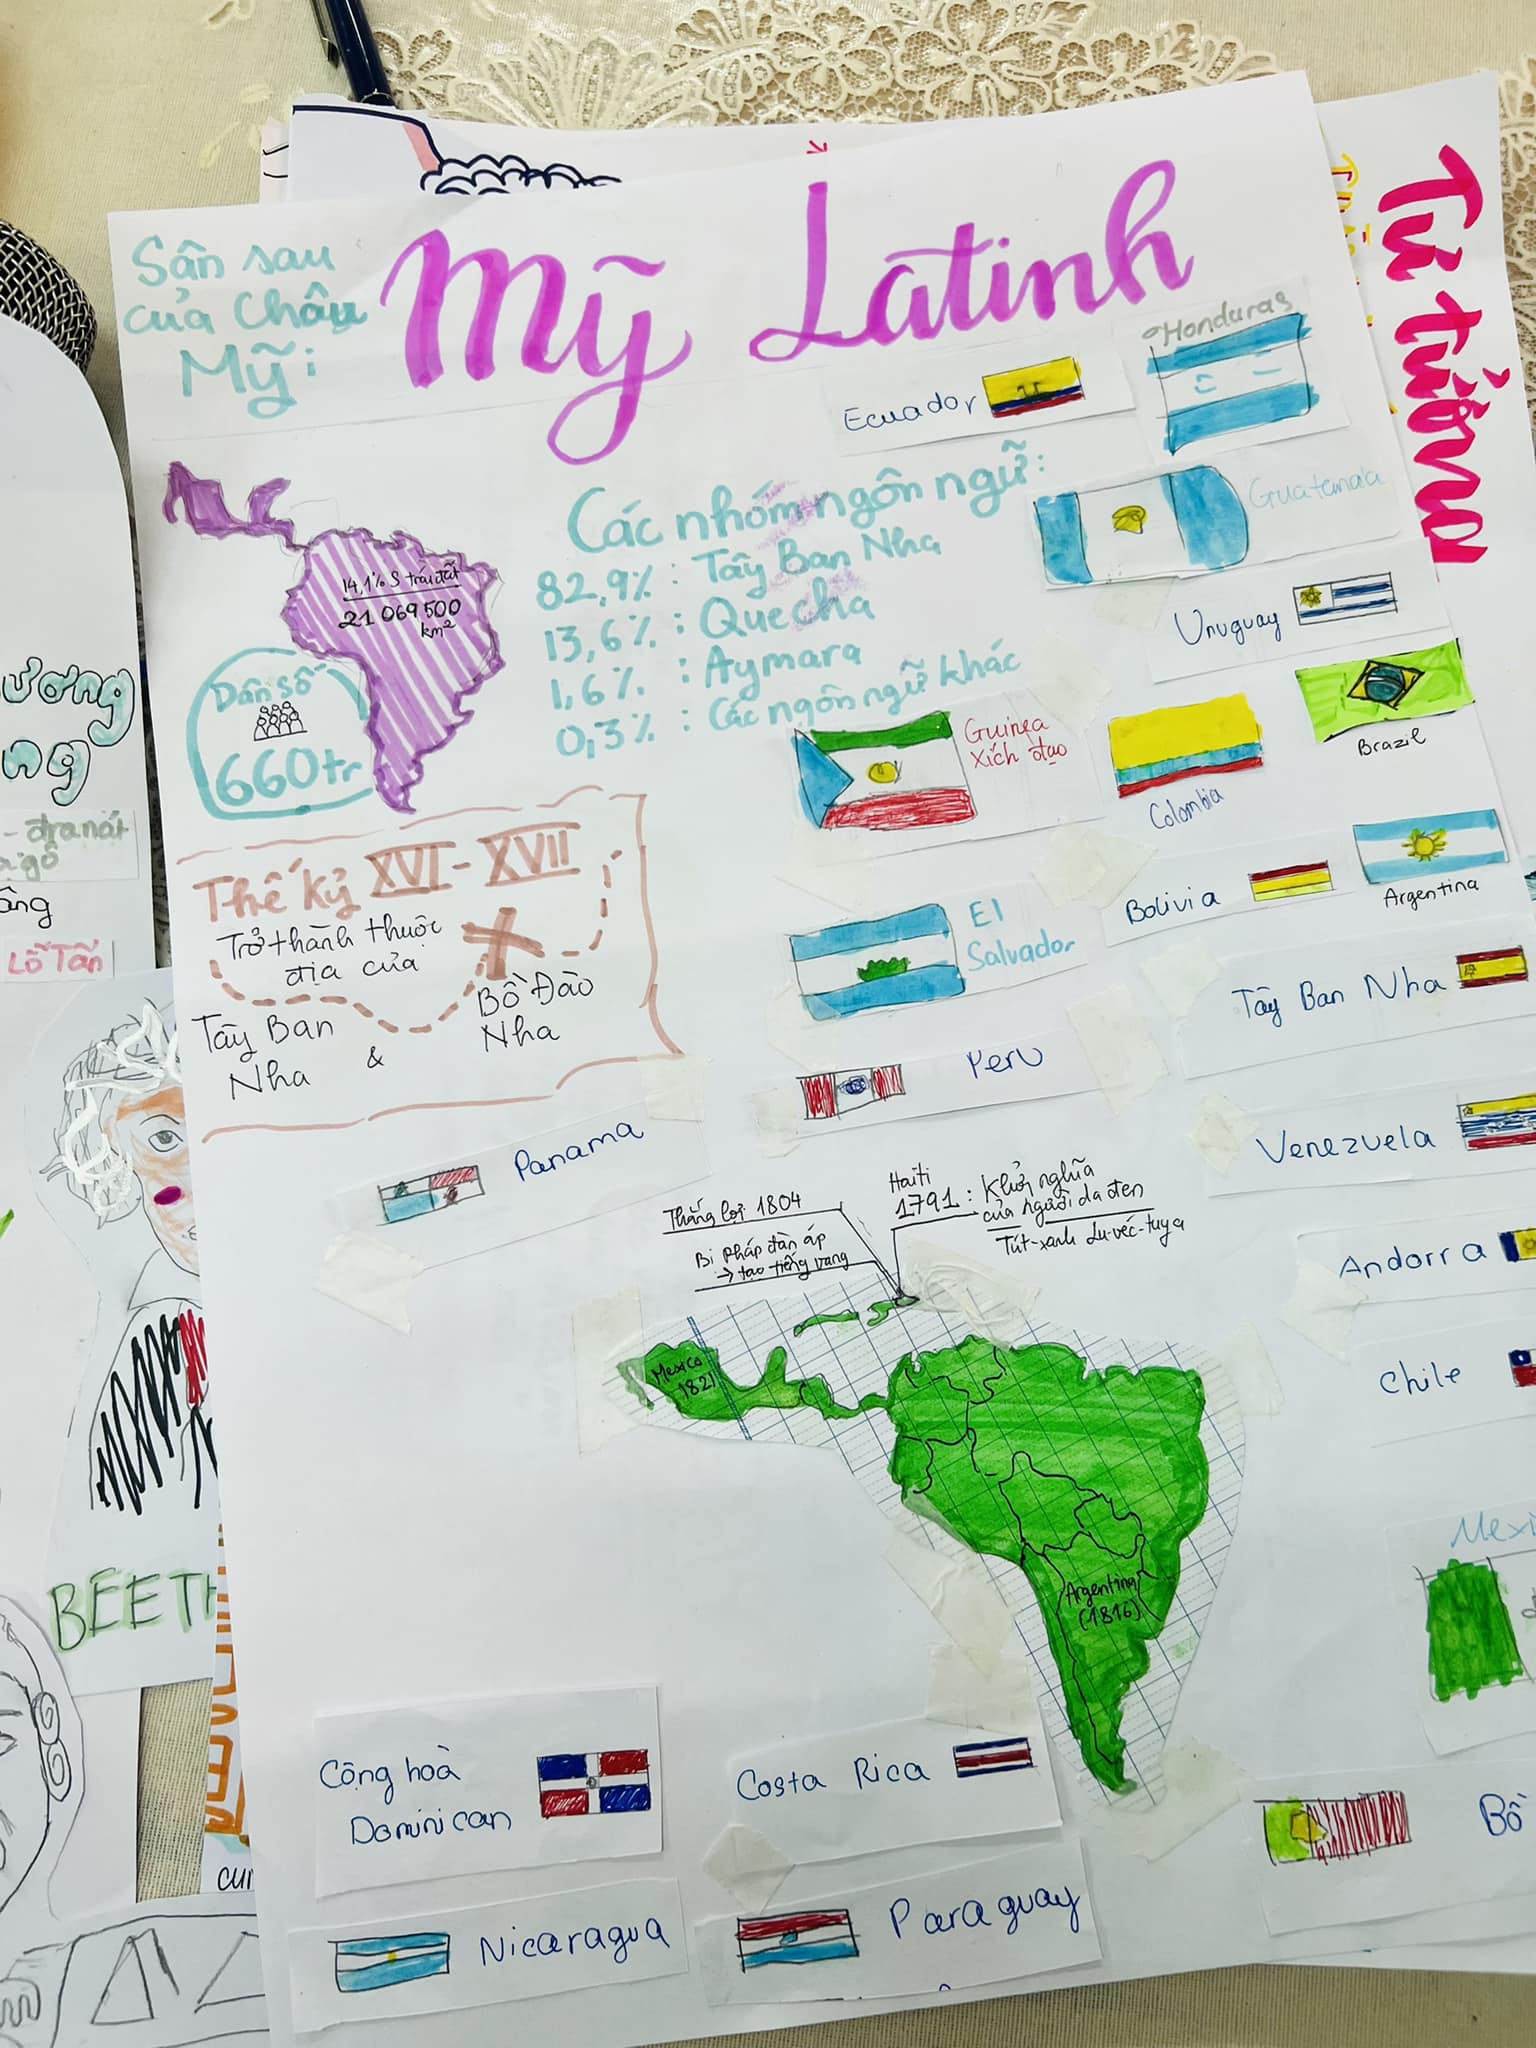 Sân sau
của Châu
Mỹ:
Mỹ Latinh
Honduras
Ecuador
Guatemala
Các nhóm ngôn ngữ:
82,9% : Tây Ban Nha
13,6% : Quecha
1,6% : Aymara
0,3% : Các ngôn ngữ khác
14,1% S trái đất
21 069 500
km²
Dân số
660tr
Uruguay
Brazil
Guinea
Xích đạo
Colombia
Thế kỷ XVI - XVII
Trở thành thuộc
địa của
Tây Ban
Nha
&
Bồ Đào
Nha
Bolivia
Argentina
El
Salvador
Tây Ban Nha
Peru
Venezuela
Panama
Thắng lợi 1804
Bị Pháp đàn áp
→ tạo tiếng vang
Haiti
1791 : Khởi nghĩa
của người da đen
Tút-xanh Lu-véc-tuya
Andorra
Chile
Mexico
1821
Argentina
(1816)
Mexi
Cộng hoà
Dominican
Costa Rica
Bồ
Nicaragua
Paraguay
Tư tưởng
ương
ng
- đranat
âng
Lỗ Tấn
BEETH
CUI